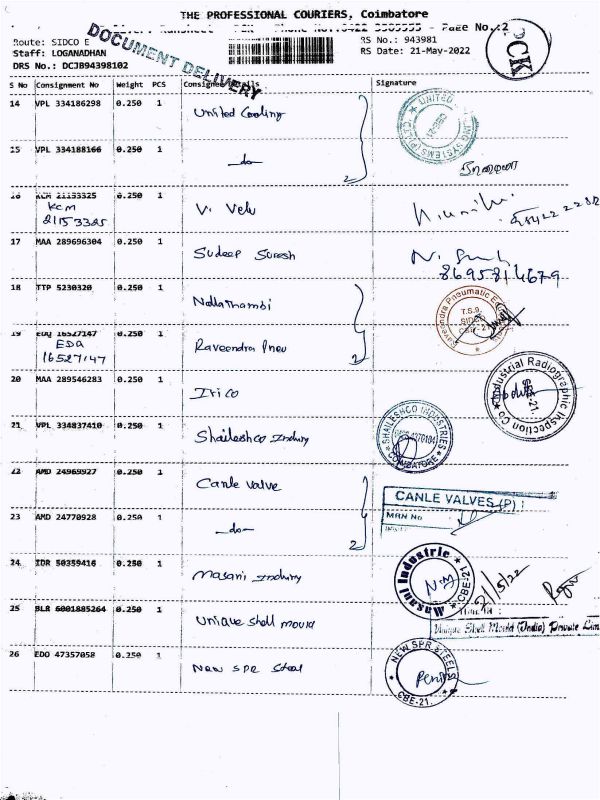 THE PROFESSIONAL COURIERS, Coimbatore
Page No.:2
Route: SIDCO E
RS No.: 943981
Staff: LOGANADHAN
RS Date: 21-May-2022
DRS No.: DCJB94398102
DOCUMENT DELIVERY
PCK
S No Consignment No Weight PCS Consignee Details Signature
14 VPL 334186298 0.250 1 United Cooling
15 VPL 334188166 0.250 1 -do- 2
16 KCM 21153325 0.250 1 V. Velu
KCM
21153325
17 MAA 289696304 0.250 1 Sudeep Suresh
8695814679
18 TTP 5230320 0.250 1 Nallathambi
19 EDQ 16527147 0.250 1 Raveendra Pneu 2
EDA
16527147
Raveendra Pneumatic
T.S.9,
SIDCO
CBE-21
20 MAA 289546283 0.250 1 Irico
Industrial Radiographic Inspection Co
CBE-21.
21 VPL 334837410 0.250 1 Shaileshco Industry
SHAILESHCO INDUSTRIES
COIMBATORE
22 AMD 24969927 0.250 1 Canle valve
23 AMD 24770928 0.250 1 -do- 2
CANLE VALVES (P)
MRN No
24 IDR 50359416 0.250 1 Masani Industry
Masani Industrie
CBE-21
21/5/22
25 BLR 6001885264 0.250 1 Unique shell mould
Unique Shell Mould (India) Private Lim
26 EDO 47357058 0.250 1 New SPR Steel
NEW SPR STEELS
CBE-21.